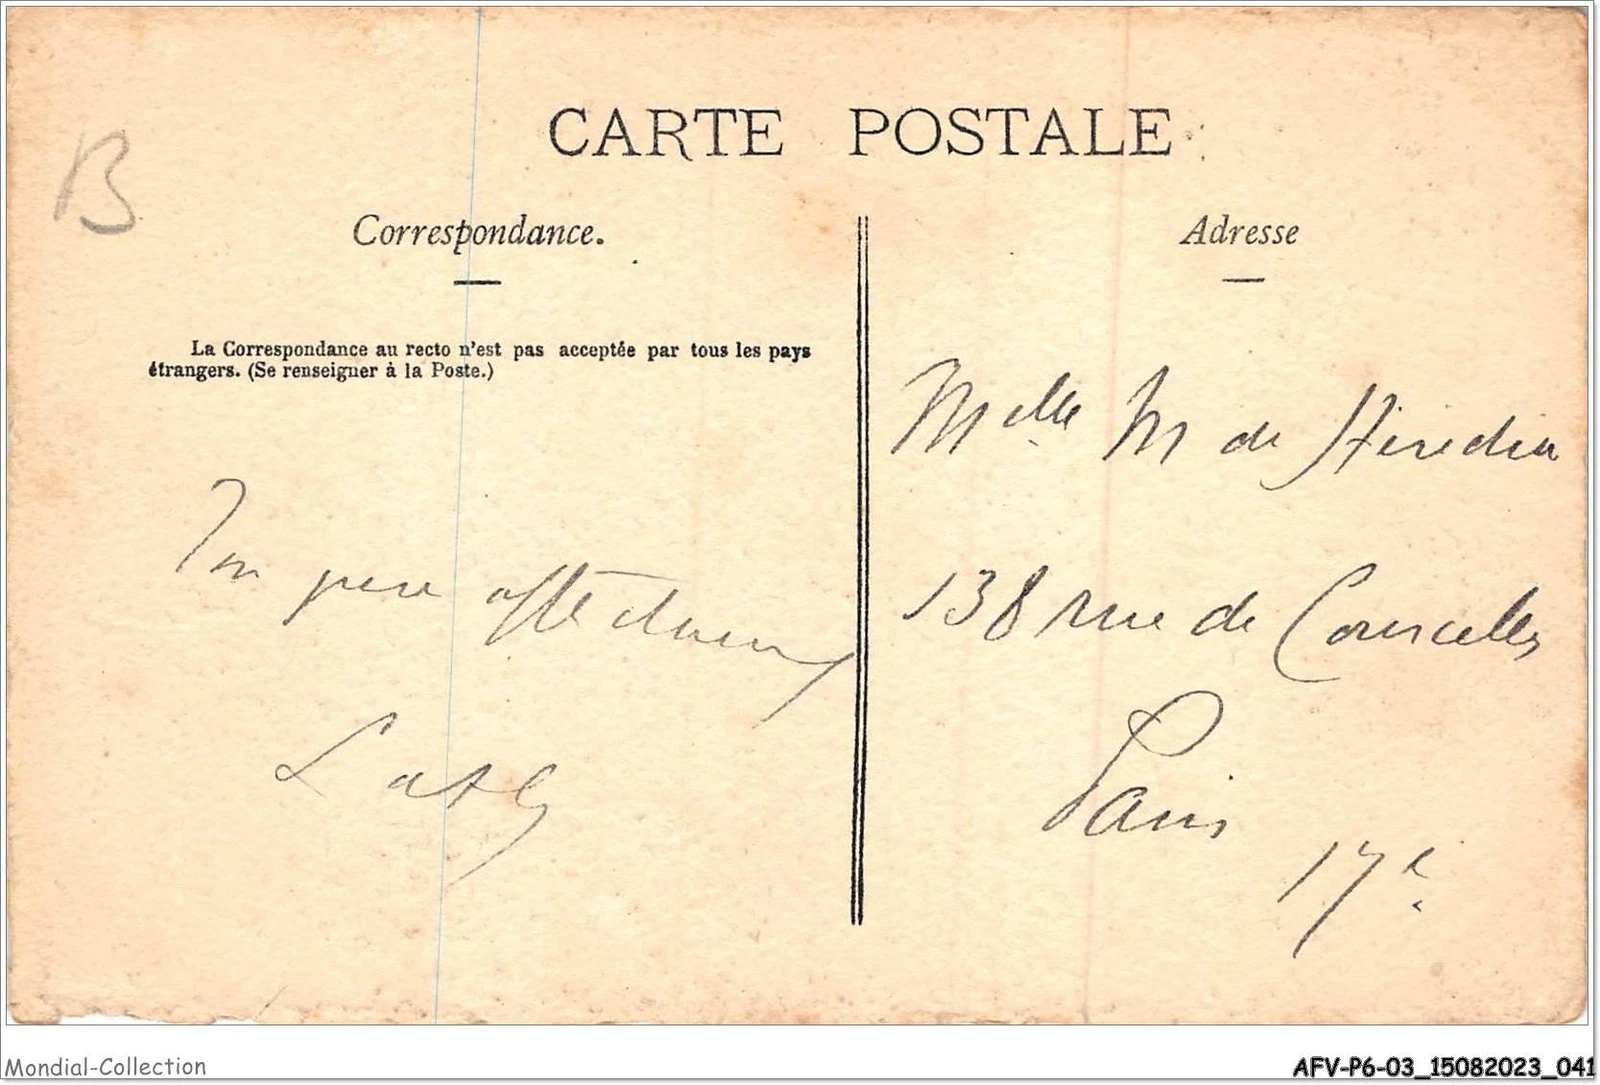 CARTE POSTALE
B
Correspondance.
La Correspondance au recto n'est pas acceptée par tous les pays
étrangers. (Se renseigner à la Poste.)
Ton père affectueux
Adresse
Melle M de Heredia
138 rue de Courcelles
Paris
17e.
Mondial-Collection
AFV-P6-03_15082023_041